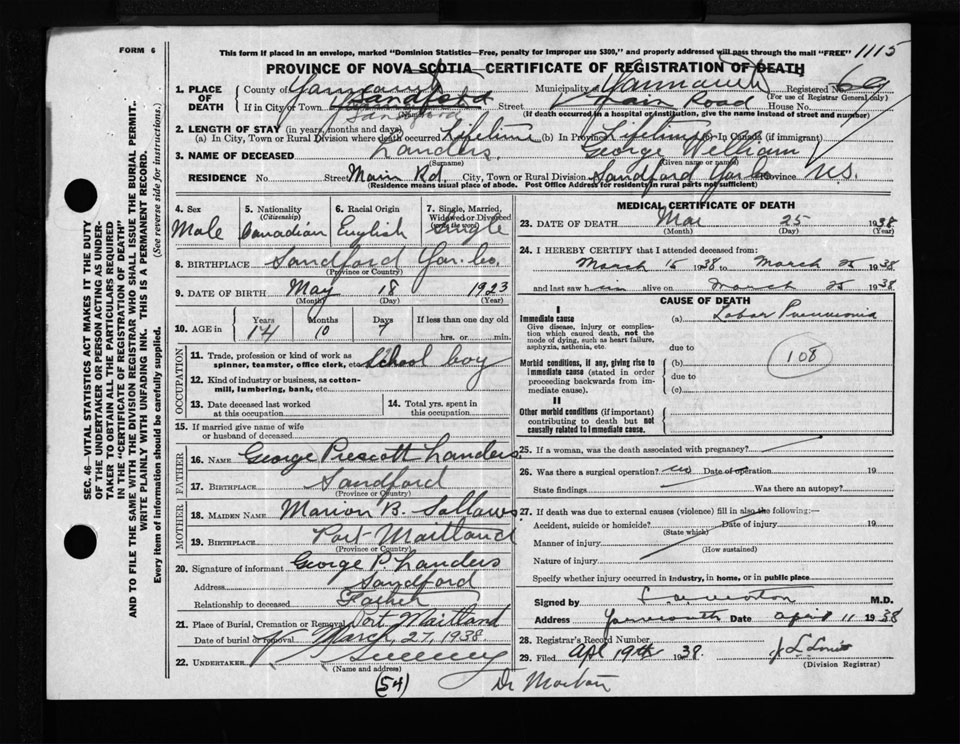 FORM 6
This form if placed in an envelope, marked "Dominion Statistics—Free, penalty for improper use $300," and properly addressed will pass through the mail "FREE" 1115
PROVINCE OF NOVA SCOTIA—CERTIFICATE OF REGISTRATION OF DEATH
1. PLACE OF DEATH County of Yarmouth Municipality of Yarmouth Registered No. 69
(For use of Registrar General only)
If in City or Town Sandford Street Main Road House No.
Sandford (If death occurred in a hospital or institution, give the name instead of street and number)
2. LENGTH OF STAY (in years, months and days)
(a) In City, Town or Rural Division where death occurred Lifetime (b) In Province Lifetime (c) In Canada (if immigrant)
3. NAME OF DECEASED Landers, George William
(Surname) (Given name or names)
RESIDENCE No. Street Main Rd. City, Town or Rural Division Sandford Yar. Co. Province N.S.
(Residence means usual place of abode. Post Office Address for residents in rural parts not sufficient)
4. Sex Male
5. Nationality (Citizenship) Canadian
6. Racial Origin English
7. Single, Married, Widowed or Divorced (write the word) Single
8. BIRTHPLACE Sandford Yar. Co.
(Province or Country)
9. DATE OF BIRTH May 18 1923
(Month) (Day) (Year)
10. AGE in Years Months Days If less than one day old
14 10 7 hrs. or min.
OCCUPATION
11. Trade, profession or kind of work as spinner, teamster, office clerk, etc. School boy
12. Kind of industry or business, as cotton-mill, lumbering, bank, etc.
13. Date deceased last worked at this occupation
14. Total yrs. spent in this occupation
15. If married give name of wife or husband of deceased
FATHER
16. NAME George Prescott Landers
17. BIRTHPLACE Sandford
(Province or Country)
MOTHER
18. MAIDEN NAME Marion B. Sollows
19. BIRTHPLACE Port Maitland
(Province or Country)
20. Signature of informant George P. Landers
Address Sandford
Relationship to deceased Father
21. Place of Burial, Cremation or Removal Port Maitland
Date of burial or removal March 27, 1938
22. UNDERTAKER Sweeney
(Name and address)
(54) Dr Morton
MEDICAL CERTIFICATE OF DEATH
23. DATE OF DEATH Mar 25 1938
(Month) (Day) (Year)
24. I HEREBY CERTIFY that I attended deceased from:
March 15 1938 to March 25 1938
and last saw him alive on March 25 1938
CAUSE OF DEATH
I
Immediate cause (a) Lobar Pneumonia
Give disease, injury or complication which caused death, not the mode of dying, such as heart failure, asphyxia, asthenia, etc.
due to
108
Morbid conditions, if any, giving rise to immediate cause (stated in order proceeding backwards from immediate cause).
(b)
due to
(c)
II
Other morbid conditions (if important) contributing to death but not causally related to immediate cause.
25. If a woman, was the death associated with pregnancy?
26. Was there a surgical operation? no Date of operation 19
State findings Was there an autopsy?
27. If death was due to external causes (violence) fill in also the following:—
Accident, suicide or homicide? Date of injury 19
(State which)
Manner of injury
(How sustained)
Nature of injury
Specify whether injury occurred in industry, in home, or in public place
Signed by Morton M.D.
Address Yarmouth Date April 11 1938
28. Registrar's Record Number
29. Filed Apl 19th 1938 J L Lewis
(Division Registrar)
SEC. 46—VITAL STATISTICS ACT MAKES IT THE DUTY
OF THE UNDERTAKER OR PERSON ACTING AS UNDER-
TAKER TO OBTAIN ALL THE PARTICULARS REQUIRED
IN THE "CERTIFICATE OF REGISTRATION OF DEATH"
AND TO FILE THE SAME WITH THE DIVISION REGISTRAR WHO SHALL ISSUE THE BURIAL PERMIT.
WRITE PLAINLY WITH UNFADING INK. THIS IS A PERMANENT RECORD.
Every item of information should be carefully supplied. (See reverse side for instructions.)